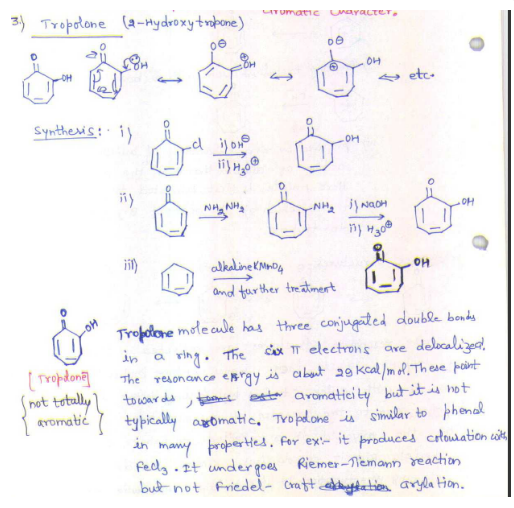 Aromatic Character.
3.) Tropolone (2-Hydroxytropone)
O OH O OH O⊖ OH⊕ O⊖ ⊕ OH etc.
Synthesis: i) O cl i) OH⊖ ii) H3O⊕ O OH
ii) O NH2NH2 O NH2 i) NaOH ii) H3O⊕ O OH
iii) alkaline KMnO4 and further treatment O OH
O OH
[Tropolone]
{not totally aromatic}
Tropolone molecule has three conjugated double bonds
in a ring. The six π electrons are delocalized.
The resonance enrgy is about 29 Kcal/mol. These point
towards, aromaticity but it is not
typically aromatic. Tropolone is similar to phenol
in many properties. For ex:- it produces colouration with
FeCl3. It undergoes Riemer-Tiemann reaction
but not Friedel-Craft arylation.